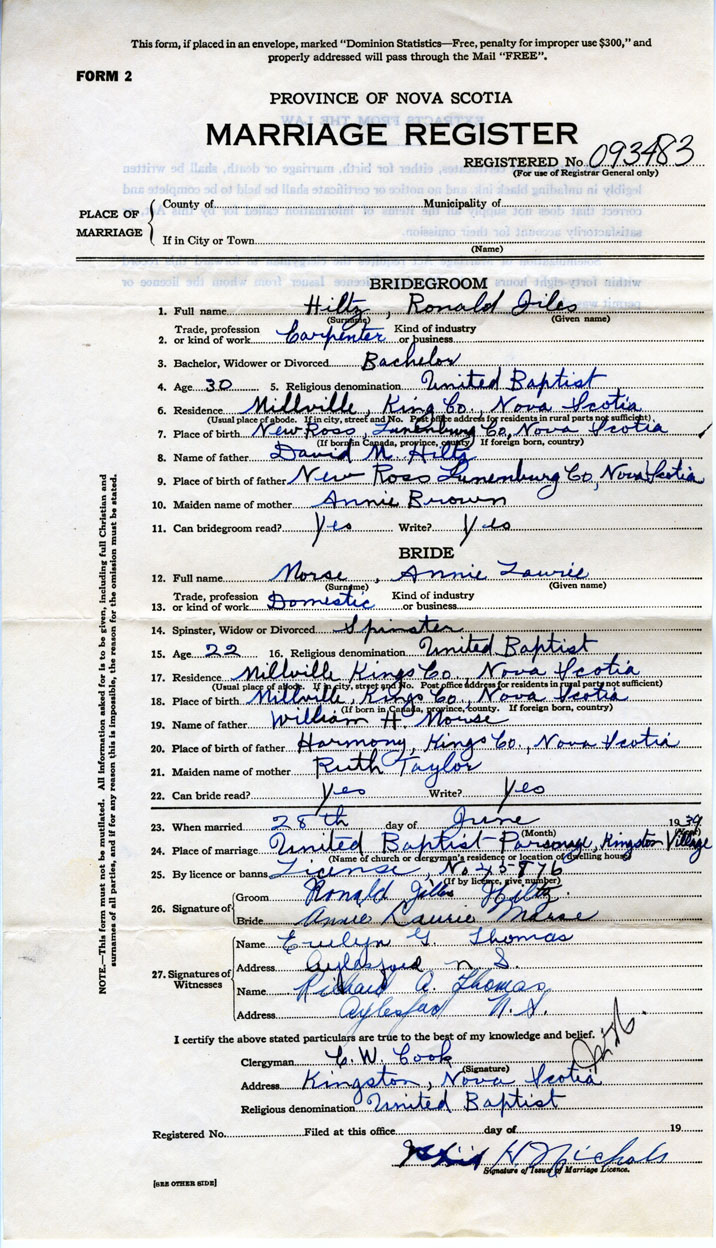 This form, if placed in an envelope, marked "Dominion Statistics—Free, penalty for improper use $300," and
properly addressed will pass through the Mail "FREE".
FORM 2
PROVINCE OF NOVA SCOTIA
MARRIAGE REGISTER
REGISTERED No. 093483
(For use of Registrar General only)
PLACE OF MARRIAGE
County of Municipality of
If in City or Town
(Name)
BRIDEGROOM
1. Full name Hiltz, Ronald Giles
(Surname) (Given name)
2. Trade, profession or kind of work Carpenter Kind of industry or business
3. Bachelor, Widower or Divorced Bachelor
4. Age 30 5. Religious denomination United Baptist
6. Residence Millville, King Co, Nova Scotia
(Usual place of abode. If in city, street and No. Post office address for residents in rural parts not sufficient)
7. Place of birth New Ross, Lunenburg Co, Nova Scotia
(If born in Canada, province, county) If foreign born, country)
8. Name of father David M. Hiltz
9. Place of birth of father New Ross Lunenburg Co, Nova Scotia
10. Maiden name of mother Annie Brown
11. Can bridegroom read? Yes Write? Yes
BRIDE
12. Full name Morse, Annie Laurie
(Surname) (Given name)
13. Trade, profession or kind of work Domestic Kind of industry or business
14. Spinster, Widow or Divorced Spinster
15. Age 22 16. Religious denomination United Baptist
17. Residence Millville Kings Co., Nova Scotia
(Usual place of abode. If in city, street and No. Post office address for residents in rural parts not sufficient)
18. Place of birth Millville, Kings Co., Nova Scotia
(If born in Canada, province, county. If foreign born, country)
19. Name of father William H. Morse
20. Place of birth of father Harmony, Kings Co., Nova Scotia
21. Maiden name of mother Ruth Taylor
22. Can bride read? Yes Write? Yes
23. When married 28th day of June 1939
(Month) (Year)
24. Place of marriage United Baptist Parsonage, Kingston Village
(Name of church or clergyman's residence or location of dwelling house)
25. By licence or banns License, No
(If by licence, give number)
26. Signature of
Groom Ronald Giles Hiltz
Bride Annie Laurie Morse
27. Signatures of Witnesses
Name Evelyn G. Thomas
Address Aylesford N S
Name Richard A. Thomas
Address Aylesford N.S.
I certify the above stated particulars are true to the best of my knowledge and belief.
Clergyman C. W. Cook
(Signature)
Address Kingston, Nova Scotia
Religious denomination United Baptist
Registered No. Filed at this office day of 19
H Nichols
Signature of Issuer of Marriage Licence.
[SEE OTHER SIDE]
NOTE.—This form must not be mutilated. All information asked for is to be given, including full Christian and
surnames of all parties, and if for any reason this is impossible, the reason for the omission must be stated.